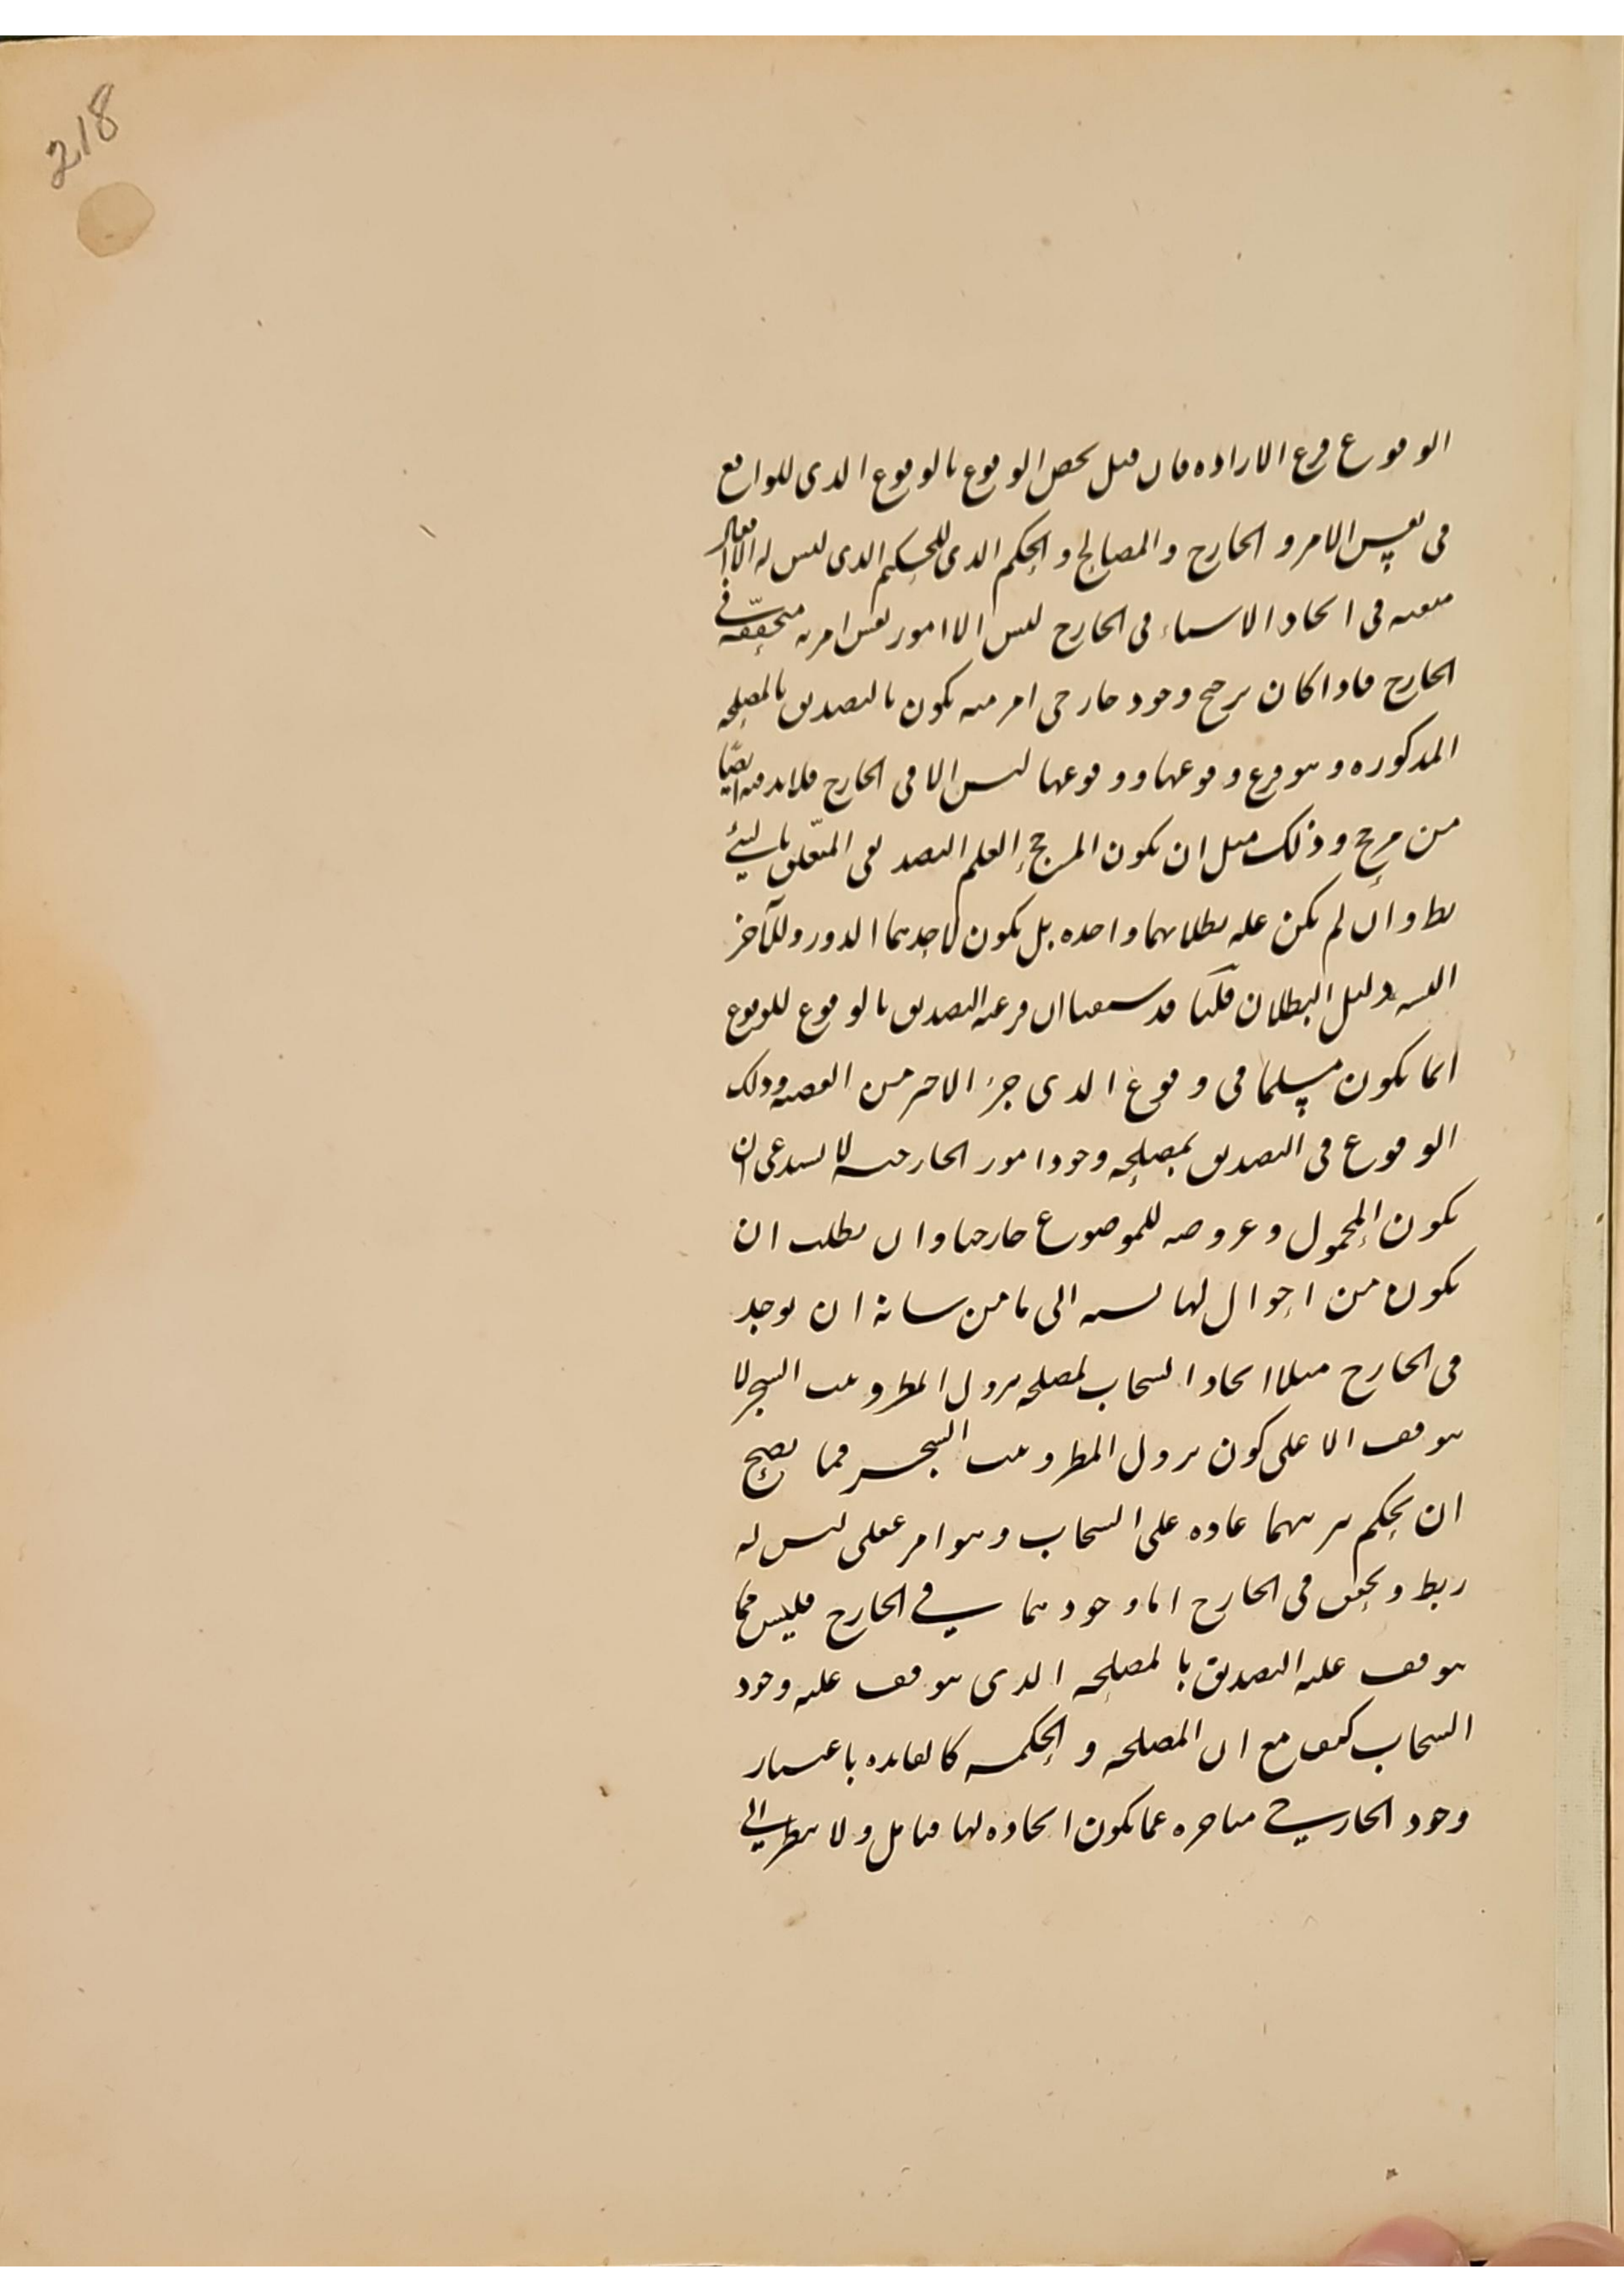 218
الوقوع فرع الارادة فان قيل يخص الوقوع بالوقوع الذى للواقع
فى نفس الامر و الخارج والمصالح و الحكم الذى للحكيم الذى ليس له الا افعال
متقنة فى ايجاد الاشياء فى الخارج ليس الا امور نفس امرية متحققة فى
الخارج فاذا كان يرجح وجود خارجى امر منه يكون بالتصديق بالمصلحة
المذكوره و هو فرع وقوعها ووقوعها ليس الا فى الخارج فلا بد فيه ايضا
من مرجح وذلك مثل ان يكون المرجح العلم التصديقى المتعلق بالشئ
بط وان لم يكن علة بطلانهما واحده بل يكون لاحدهما الدور وللآخر
التسـ دليل البطلان قلنا قد سمعنا ان فرعية التصديق بالوقوع للوقوع
انما يكون مسلما فى وقوع الذى جزء الاخر من القضية وذلك
الوقوع فى التصديق بمصلحة وجود امور الخارجية لا يستدعى ان
يكون المحمول وعروضه للموضوع خارجيا وان يطلب ان
يكون من احوال لها نسبة الى ما من شانه ان يوجد
فى الخارج مثلا ايجاد السحاب لمصلحة نزول المطر و نبت الشجر لا
يتوقف الا على كون نزول المطر و نبت الشجر مما يصح
ان يحكم بترتبهما عادة على السحاب و هو امر عقلى ليس له
ربط و تحقق فى الخارج اما وجودهما فى الخارج فليس مما
يتوقف عليه التصديق بالمصلحة الذى يتوقف عليه وجود
السحاب كيف مع ان المصلحة و الحكمة كالفايدة باعتبار
وجود الخارجى متاخره عما يكون ايجاده لها فتامل ولا ينظر الى